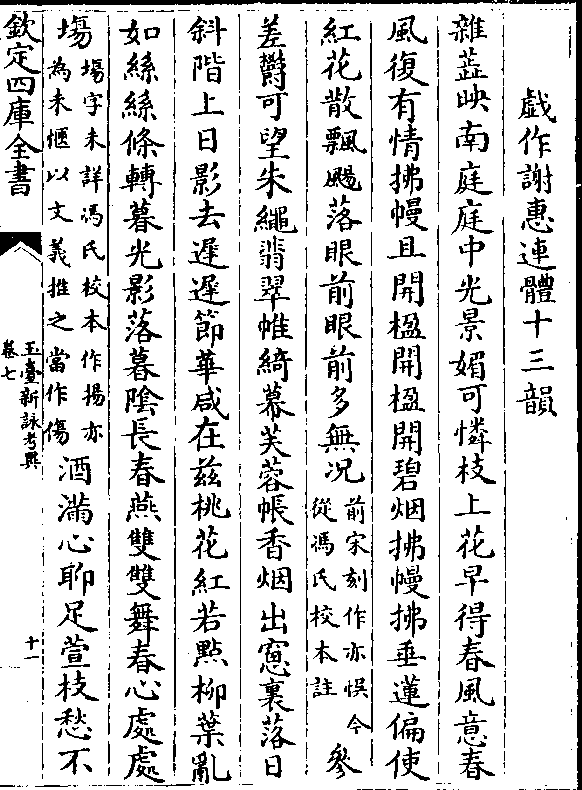 戱作謝惠連體十三韻
雜蘂映南庭庭中光景媚可憐枝上花早得春風意春
風復有情拂幔且開楹開楹開碧烟拂幔拂垂蓮偏使
紅花散飄颺落眼前眼前多無况前宋刻作亦悞今從馮氏校本註參
差鬱可望朱繩翡翠帷綺幕芙蓉帳香烟出窻裏落日
斜階上日影去遲遲節華咸在兹桃花紅若點柳葉亂
如絲絲條轉暮光影落暮隂長春燕雙雙舞春心處處
塲塲字未詳馮氏校本作揚亦為未愜以文義推之當作傷酒滿心聊足萱枝愁不
欽定四庫全書
玉臺新詠考異
卷七
十一